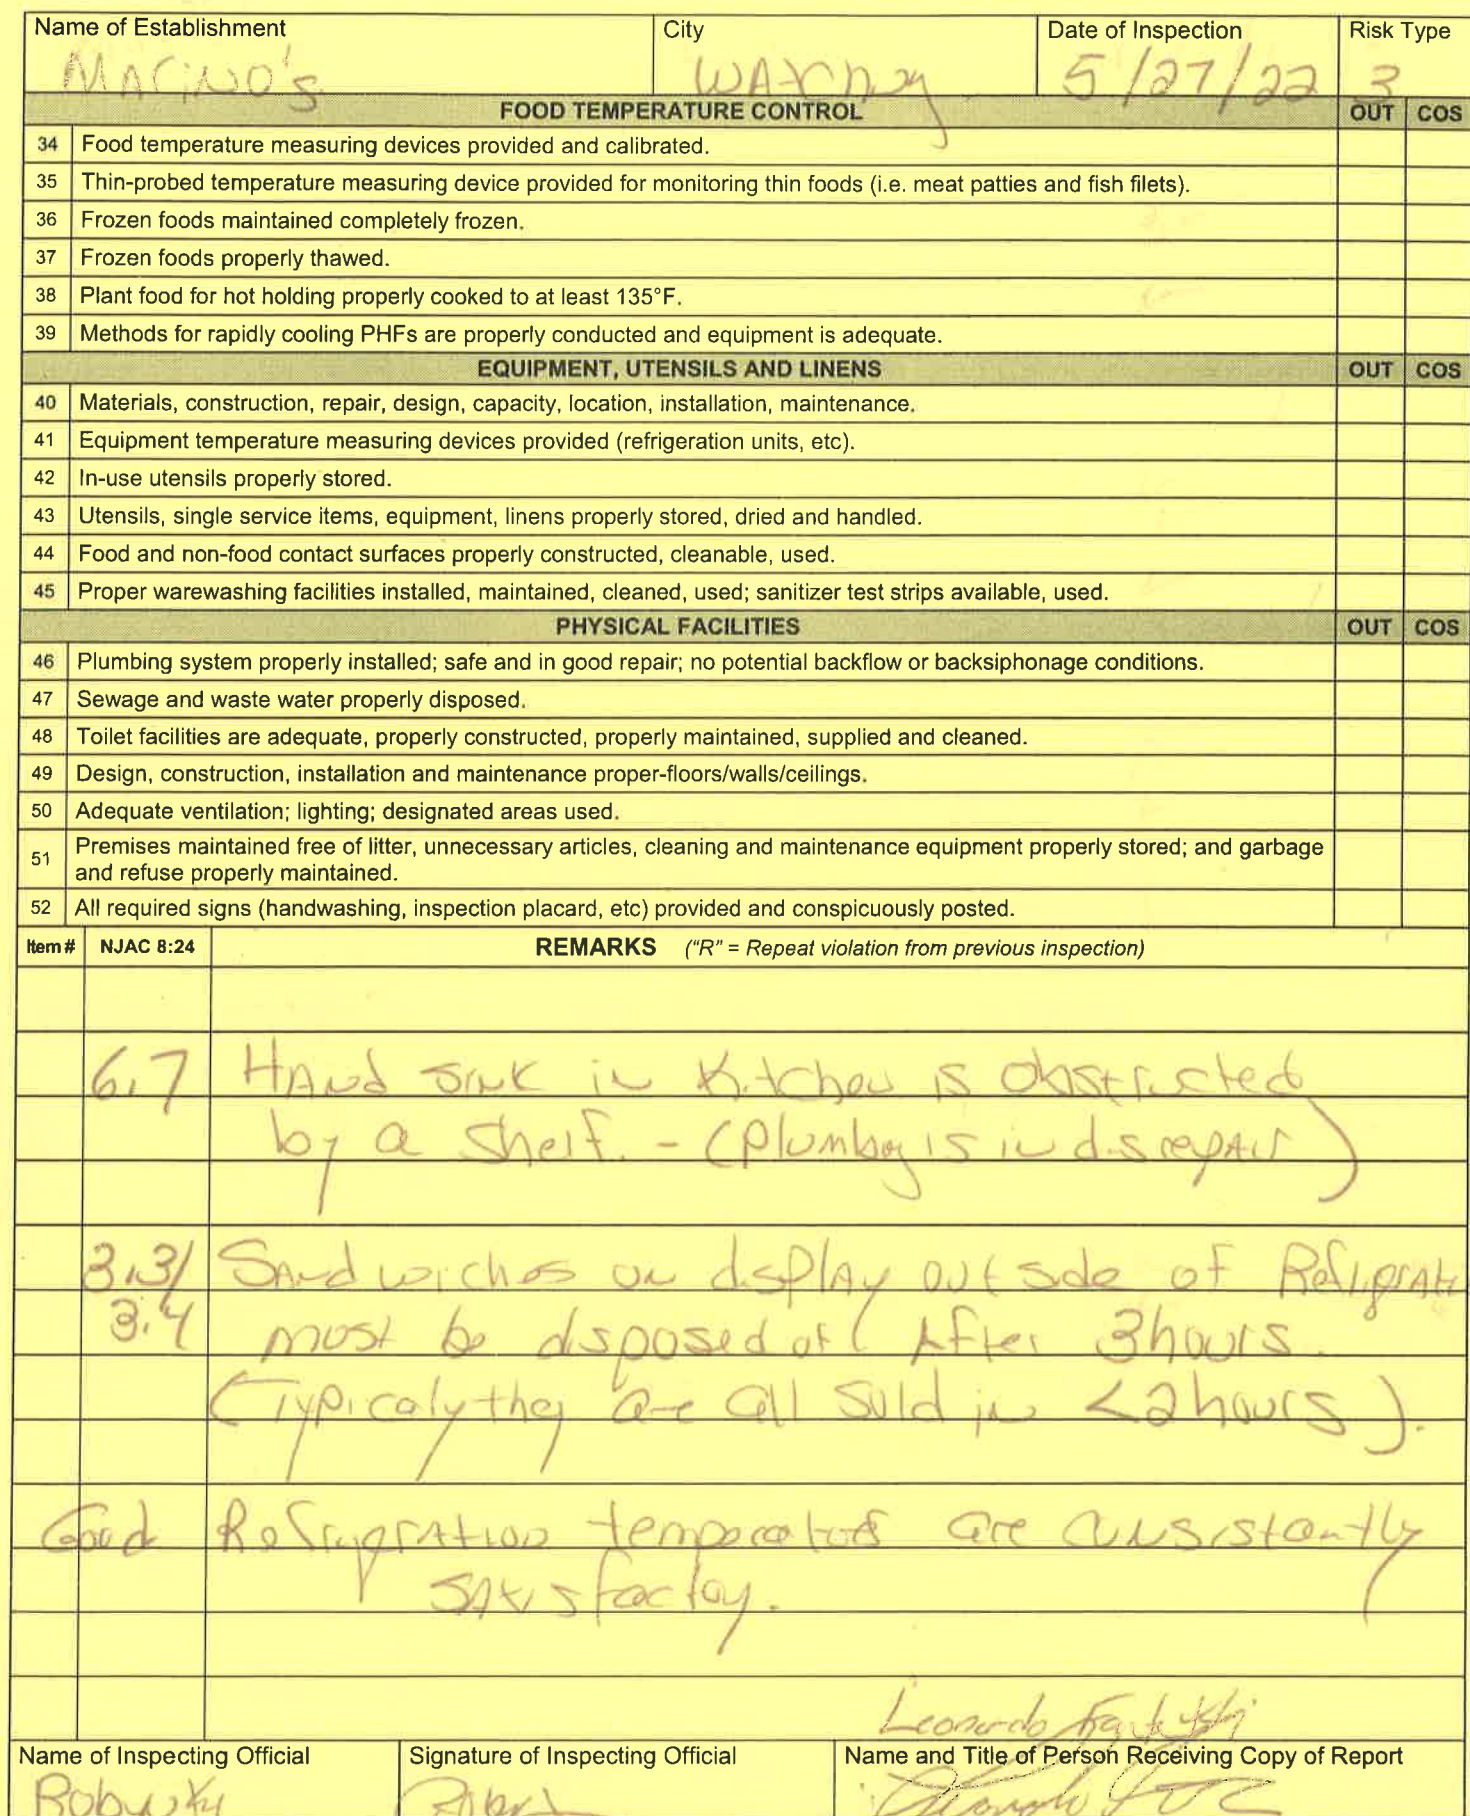 Name of Establishment City Date of Inspection Risk Type
MACINO'S WAtchung 5/27/22 3
FOOD TEMPERATURE CONTROL OUT COS
34 Food temperature measuring devices provided and calibrated.
35 Thin-probed temperature measuring device provided for monitoring thin foods (i.e. meat patties and fish filets).
36 Frozen foods maintained completely frozen.
37 Frozen foods properly thawed.
38 Plant food for hot holding properly cooked to at least 135°F.
39 Methods for rapidly cooling PHFs are properly conducted and equipment is adequate.
EQUIPMENT, UTENSILS AND LINENS OUT COS
40 Materials, construction, repair, design, capacity, location, installation, maintenance.
41 Equipment temperature measuring devices provided (refrigeration units, etc).
42 In-use utensils properly stored.
43 Utensils, single service items, equipment, linens properly stored, dried and handled.
44 Food and non-food contact surfaces properly constructed, cleanable, used.
45 Proper warewashing facilities installed, maintained, cleaned, used; sanitizer test strips available, used.
PHYSICAL FACILITIES OUT COS
46 Plumbing system properly installed; safe and in good repair; no potential backflow or backsiphonage conditions.
47 Sewage and waste water properly disposed.
48 Toilet facilities are adequate, properly constructed, properly maintained, supplied and cleaned.
49 Design, construction, installation and maintenance proper-floors/walls/ceilings.
50 Adequate ventilation; lighting; designated areas used.
51 Premises maintained free of litter, unnecessary articles, cleaning and maintenance equipment properly stored; and garbage
and refuse properly maintained.
52 All required signs (handwashing, inspection placard, etc) provided and conspicuously posted.
Item # NJAC 8:24 REMARKS ("R" = Repeat violation from previous inspection)
6.7 Hand sink in Kitchen is obstructed
by a shelf. - (plumbing is in disrepair)
3.3/ Sandwiches on display outside of Refrigerati
3.4 must be disposed of After 3 hours.
(Typicaly they are all sold in <2hours).
Good Refrigeration temperatures are consistantly
satisfactory.
Leonardo
Name of Inspecting Official Signature of Inspecting Official Name and Title of Person Receiving Copy of Report